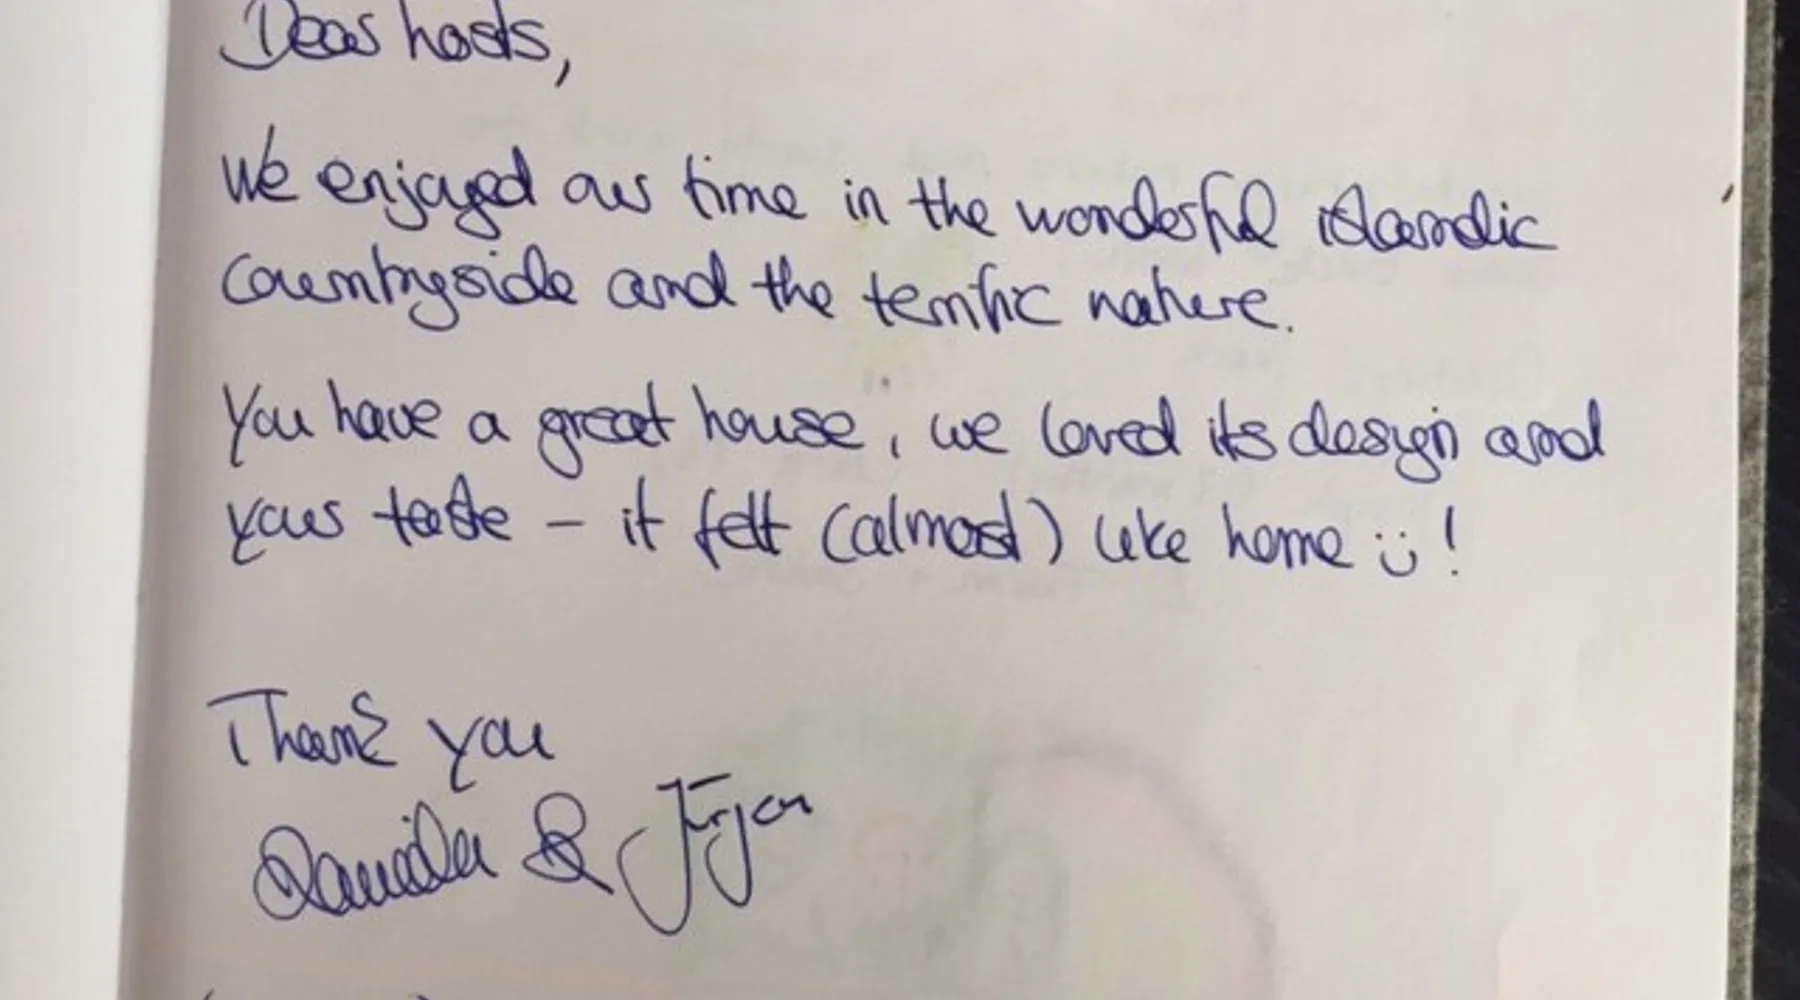 Dear hosts,
We enjoyed our time in the wonderful islandic
countryside and the terrific nature.
You have a great house, we loved its design and
your taste – it felt (almost) like home :)!
Thank you
Daniela & Jürgen